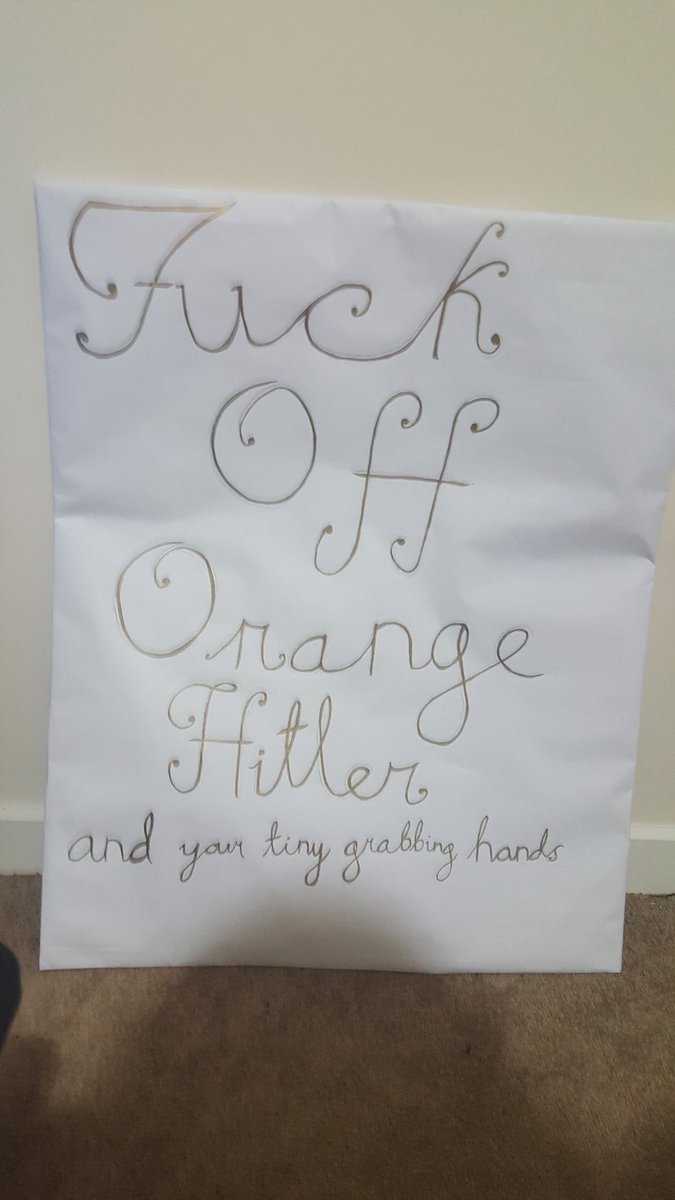 Fuck
Off
Orange
Hitler
and your tiny grabbing hands